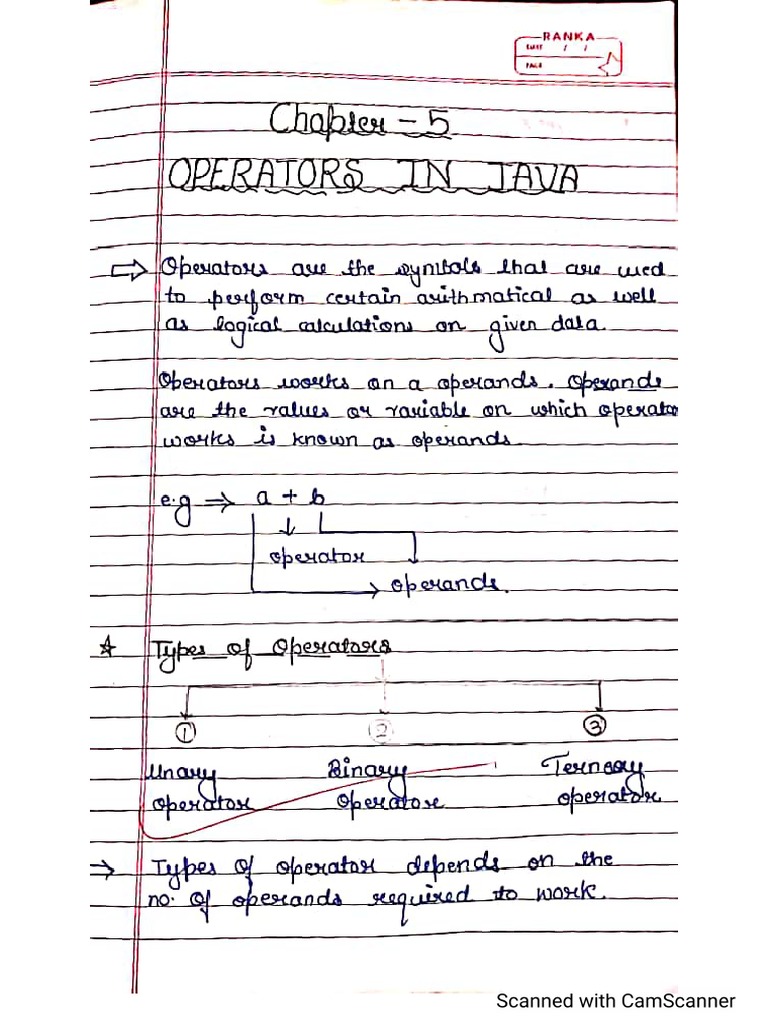 RANKA
DATE / /
PAGE
Chapter - 5
OPERATORS IN JAVA
⇨ Operators are the symbols that are used
to perform certain arithmatical as well
as logical calculations on given data.
Operators works on a operands. Operands
are the values or variable on which operator
works is known as operands.
e.g ⇒ a + b
operator
operands.
☆ Types of Operators
① ② ③
Unary Binary Ternary
operator operator operator
→ Types of operator depends on the
no. of operands required to work.
Scanned with CamScanner